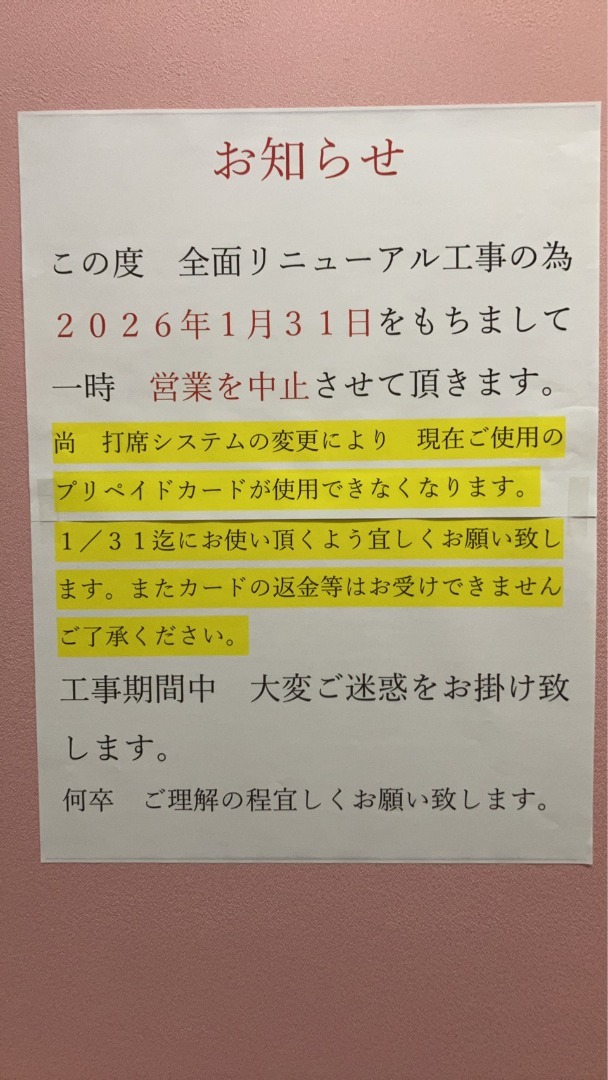 お知らせ
この度　全面リニューアル工事の為
２０２６年１月３１日をもちまして
一時　営業を中止させて頂きます。
尚　打席システムの変更により　現在ご使用の
プリペイドカードが使用できなくなります。
１／３１迄にお使い頂くよう宜しくお願い致し
ます。またカードの返金等はお受けできません
ご了承ください。
工事期間中　大変ご迷惑をお掛け致
します。
何卒　ご理解の程宜しくお願い致します。